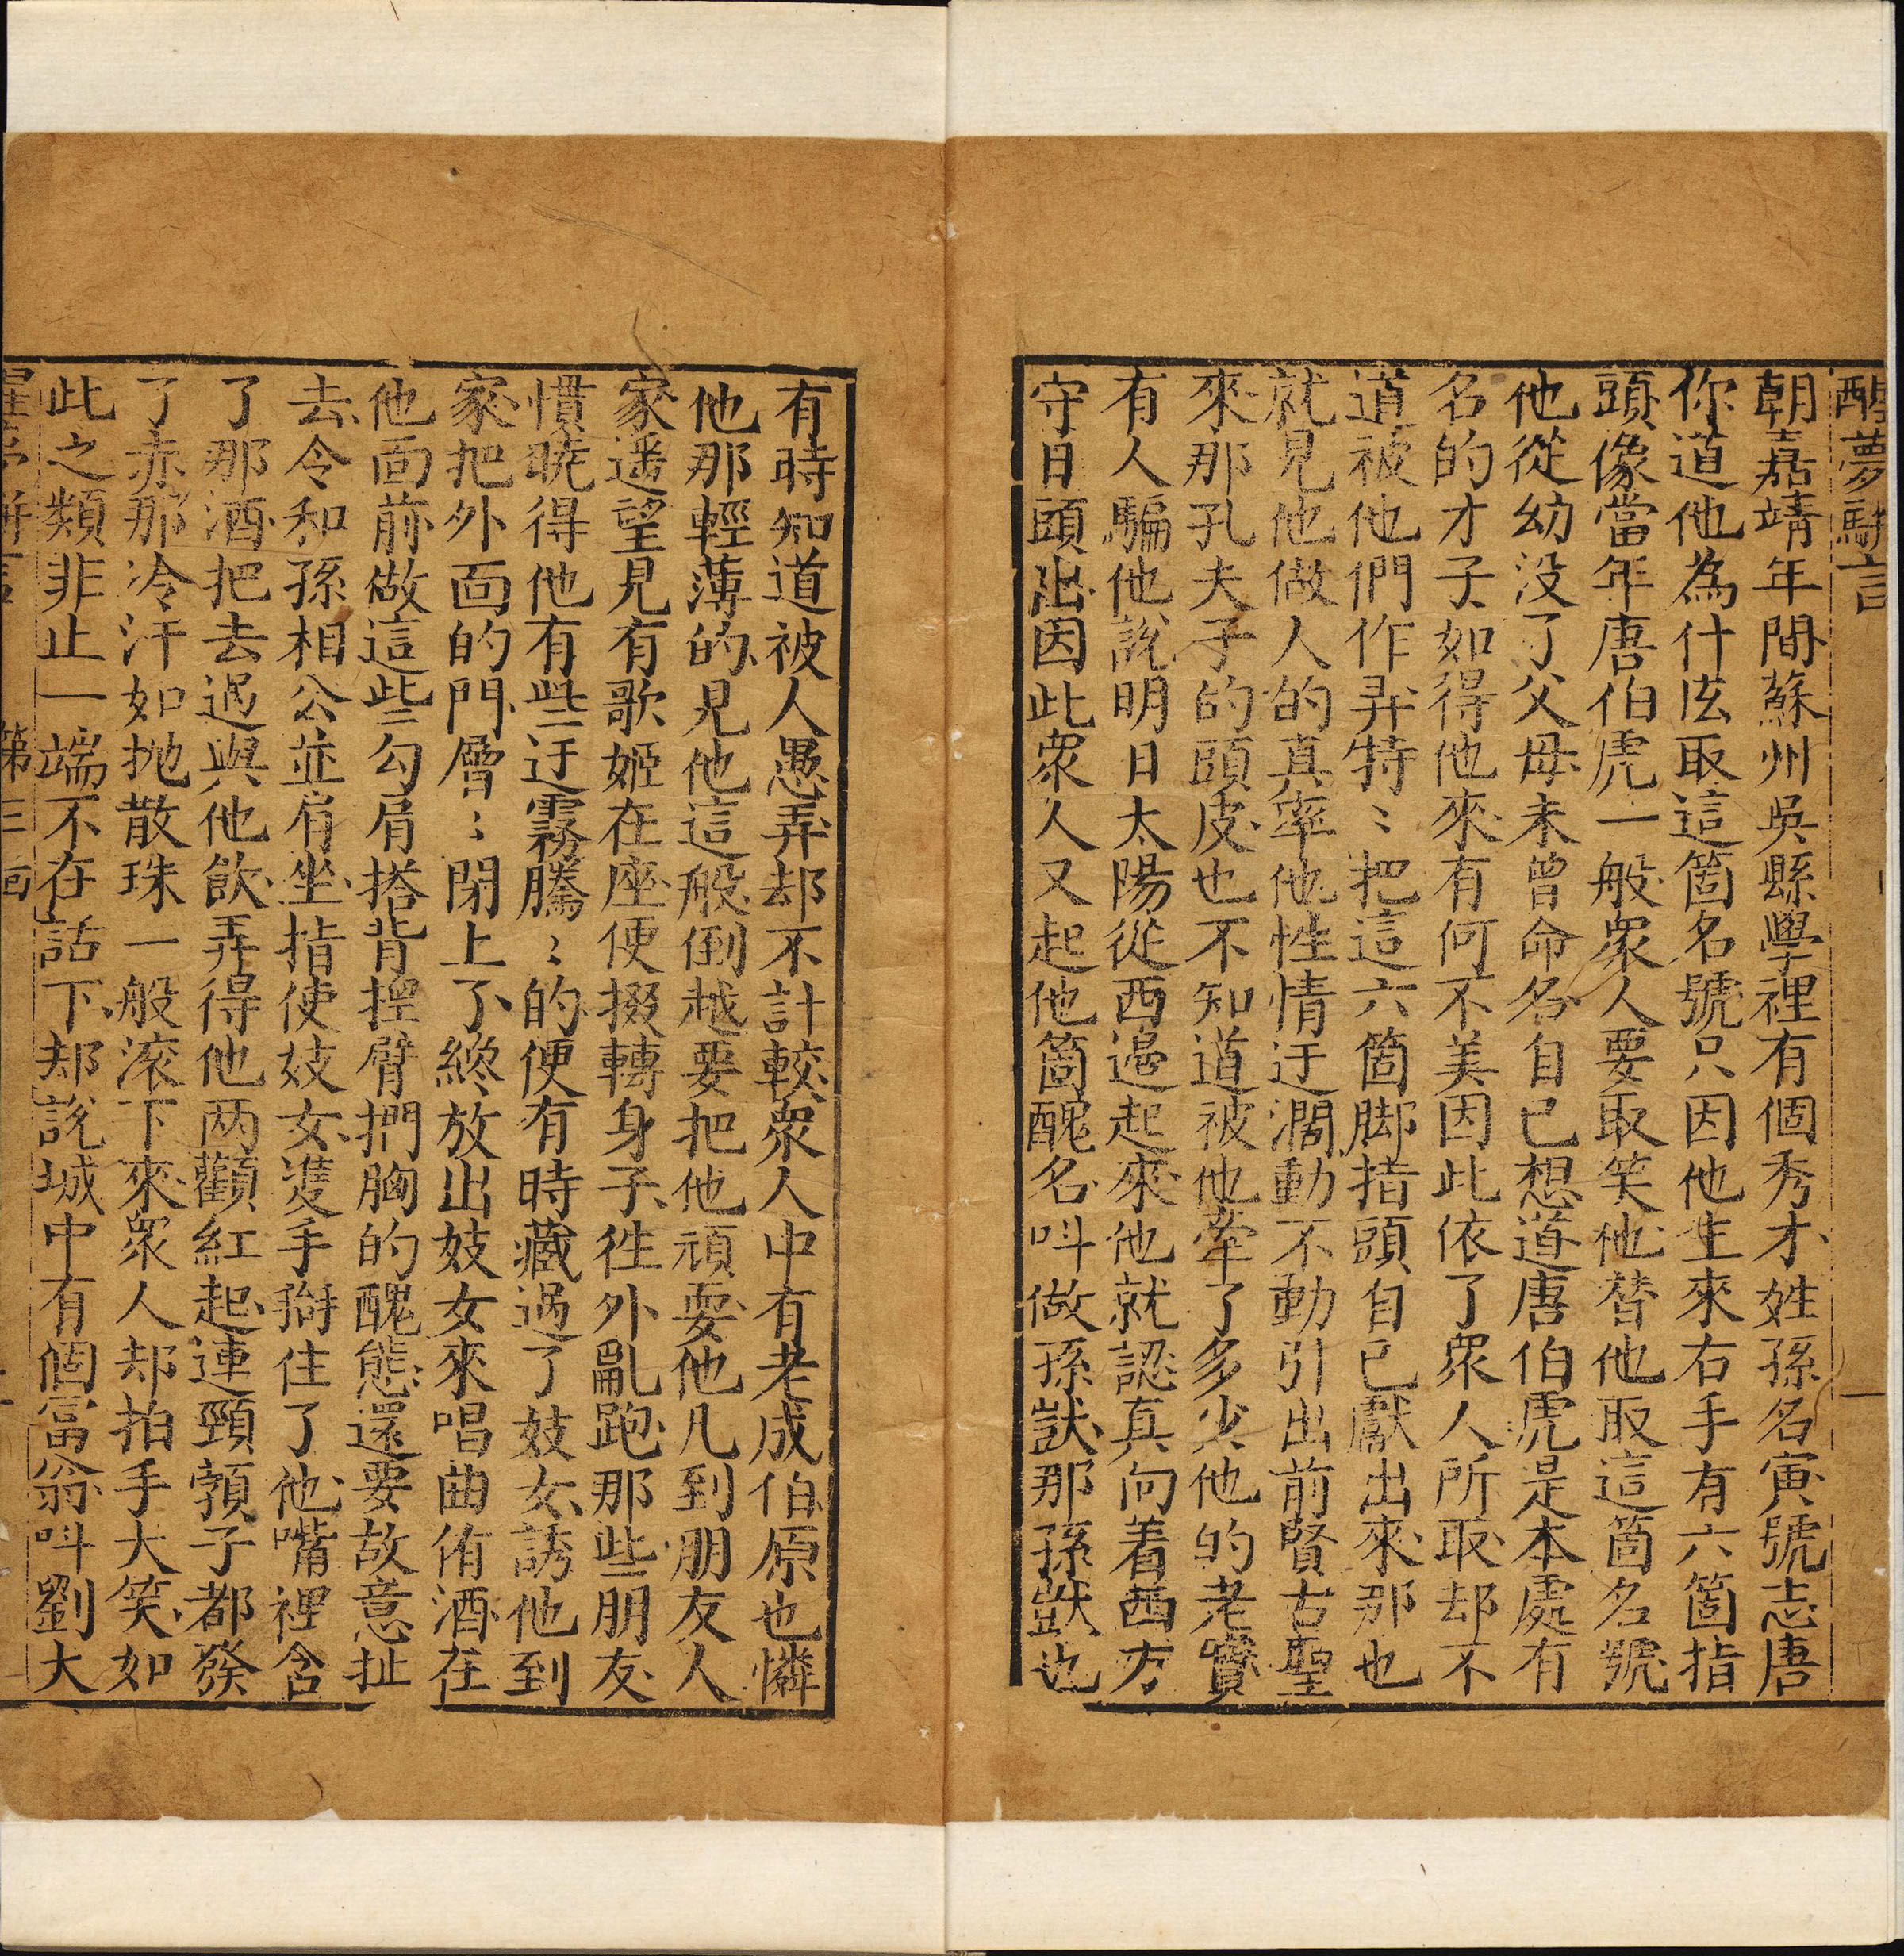 醒夢駢言
朝嘉靖年間蘇州吳縣學裡有個秀才姓孫名寅號志唐
你道他為什庅取這箇名號只因他生來右手有六箇指
頭像當年唐伯虎一般衆人要取笑他替他取這箇名號
他從幼没了父母未曾命名自已想道唐伯虎是本處有
名的才子如得他來有何不美因此依了衆人所取却不
道被他們作弄特〻把這六箇脚指頭自已獻出來那也
就見他做人的真率他性情迂濶動不動引出前賢古聖
來那孔夫子的頭皮也不知道被他牽了多少他的老實
有人騙他說明日太陽從西邉起來他就認真向着西方
守日頭出因此衆人又起他箇醜名呌做孫獃那孫獃也
有時知道被人愚弄却不計較衆人中有老成伯原也憐
他那輕薄的見他這般倒越要把他頑耍他凡到朋友人
家遥望見有歌姬在座便掇轉身子徃外亂跑那些朋友
慣暁得他有些迂霧騰〻的便有時藏過了妓女誘他到
家把外面的門層〻閉上了終放出妓女來唱曲侑酒在
他面前做這些勾肩搭背控臂捫胸的醜態還要故意扯
去令和孫相公並肩坐指使妓女雙手搿住了他嘴裡含
了那酒把去過與他飲弄得他两顴紅起連頸頸子都發
了赤那冷汗如抛散珠一般滚下來衆人却拍手大笑如
此之類非止一端不在話下却說城中有個富翁呌劉大
醒夢駢言 第三回